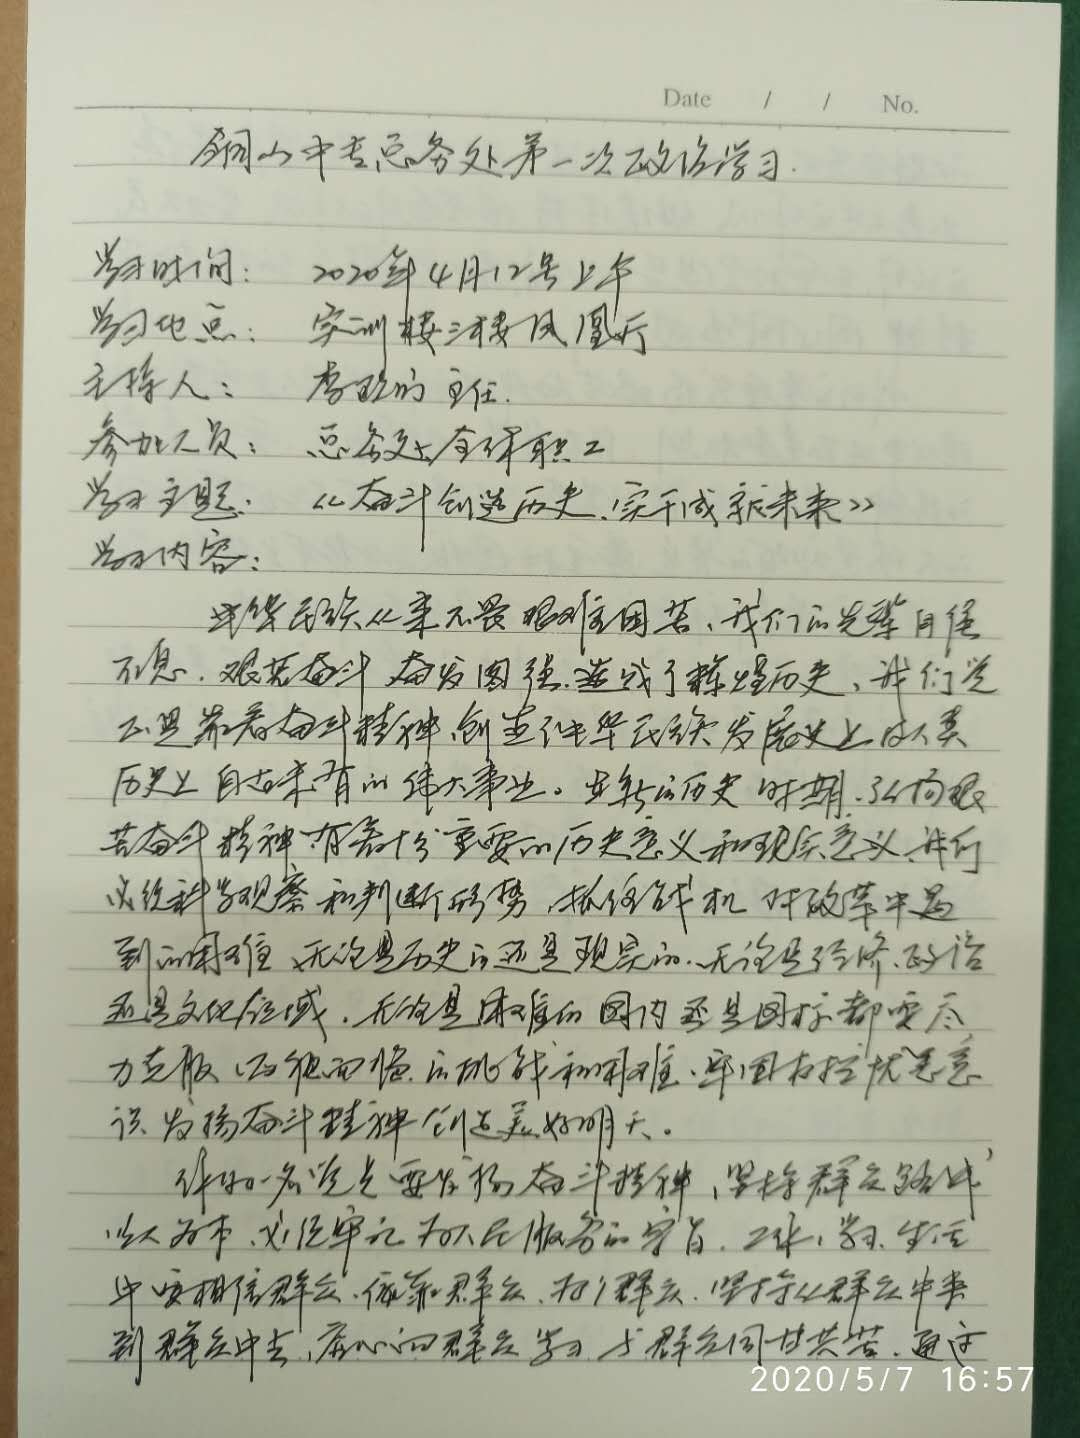 Date / / No.
铜山中专总务处第一次政治学习.
学习时间: 2020年4月12号上午
学习地点: 实训楼三楼凤凰厅
主持人: 李 主任.
参加人员: 总务处全体职工
学习主题: 《奋斗创造历史、实干成就未来》
学习内容:
中华民族从来不畏艰难困苦、我们的先辈自强
不息、艰苦奋斗 奋发图强、造成了辉煌历史、我们党
正是靠着奋斗精神、创造了中华民族发展史上的人类
历史上自古未有的伟大事业。在新的历史时期、弘扬艰
苦奋斗精神 有着十分重要的历史意义和现实意义、我们
必须科学观察和判断形势、抓住战机 对改革中遇
到的困难、无论是历史的还是现实的、无论是经济、政治
还是文化领域、无论是困难的国内还是国际都要尽
力克服、 面临的挑战和困难、牢固 忧患意
识 发扬奋斗精神 创造美好明天。
作为一名党员要发扬奋斗精神、坚持群众路线
以人为本、必须牢记为人民服务的宗旨、工作、学习、生活
中要相信群众、依靠群众、为了群众、坚持从群众中来
到群众中去、虚心向群众学习、与群众同甘共苦、通过
2020/5/7 16:57